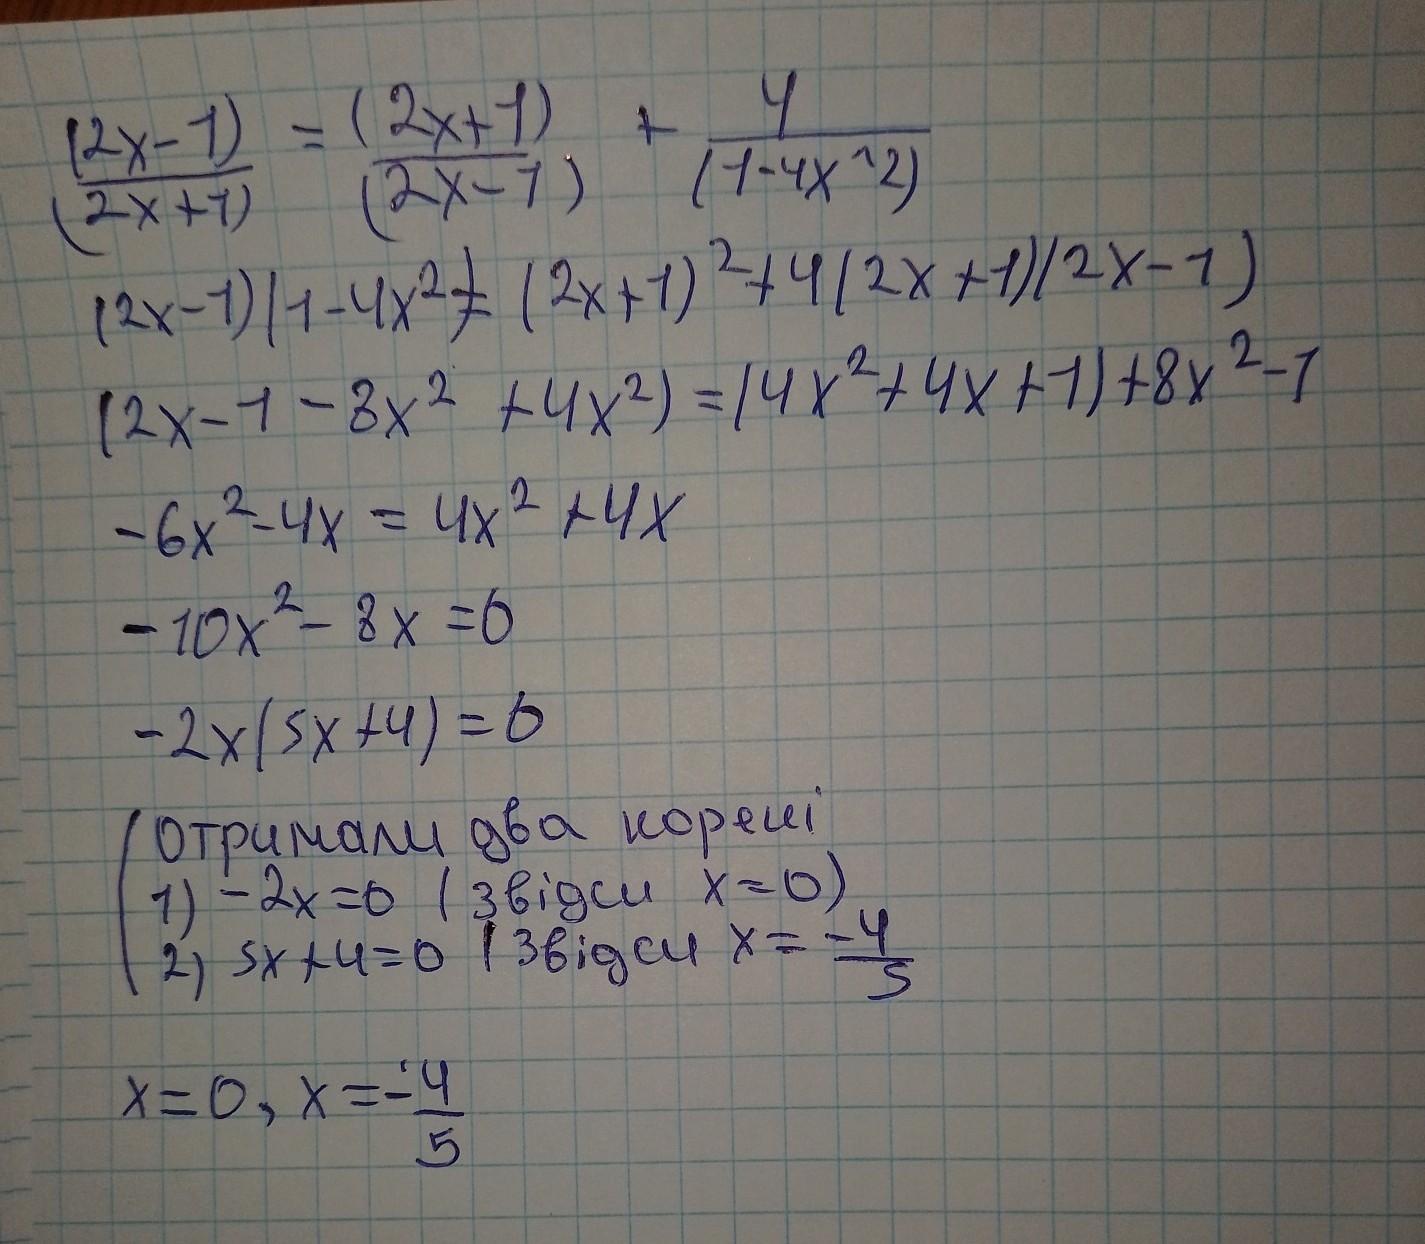 (2x-1)/(2x+1) = (2x+1)/(2x-1) + 4/(1-4x^2)
(2x-1)(1-4x²) = (2x+1)²+4(2x+1)(2x-1)
(2x-1-8x²+4x²)=(4x²+4x+1)+8x²-1
-6x²-4x=4x²+4x
-10x²-8x=0
-2x(5x+4)=0
(Отримали два корені
1) -2x=0 (звідси x=0)
2) 5x+4=0 (звідси x=-4/5
x=0, x=-4/5